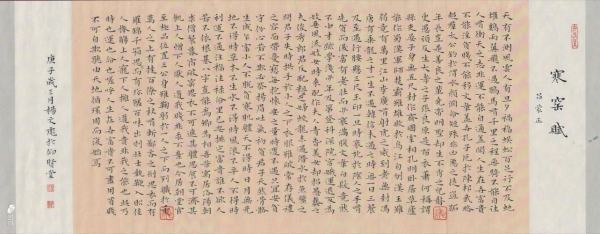 寒窑賦
呂蒙正
天有不測風雲人有旦夕禍福蜈蚣百足行不及蛇
雄鷄兩翼飛不過鴉馬有千里之程無騎不能自往
人有衝天之志非運不能自通蓋聞人生在世富貴
不能淫貧賤不能移文章蓋世孔子厄於陳邦武略
超群太公釣於渭水顏淵命短殊非凶惡之徒盜跖
年長豈是善良之輩堯帝明聖却生不肖之兒瞽
叟愚頑反生大孝之子張良原是布衣蕭何稱謂
縣吏晏子身無五尺封作齊國宰相孔明卧居草廬
能作蜀漢軍師楚霸雖雄敗於烏江自刎漢王雖
弱竟有萬里江山李廣有射虎之威到老無封馮
唐有乘龍之才一生不遇韓信未遇之時無一日三餐
及至遇行腰懸三尺玉印一旦時衰死於陰人之手有
先貧而後富有老壯而少衰滿腹文章白髮竟然
不中才疏學淺少年及第登科深院宮娥運退反為
妓妾風流妓女時來配作夫人青春美女却招愚蠢之
夫俊秀郎君反配粗醜之婦蛟龍未遇潛水於魚鱉之
間君子失時拱手於小人之下衣服雖破常存儀禮
之容面帶憂愁每抱懷安之量時遭不遇只宜安貧
守份心若不欺必然揚眉吐氣初貧君子天然骨骼
生成乍富小人不脫貧寒肌體天不得時日月無光
地不得時草木不生水不得時風浪不平人不得時
利運不通注福注祿命裏已安排定富貴誰不欲人
若不依根基八字豈能為卿為相吾昔寓居洛陽朝
求僧餐暮宿破窑思衣不可遮其體思食不可濟其
飢上人憎下人厭人道我賤非我不棄也今居朝堂官
至極品位置三公身雖鞠躬於一人之下而列職於千
萬人之上有撻百僚之杖有斬鄙吝之劍思衣而有
羅錦千箱思食而有珍饈百味出則壯士執鞭入則佳
人捧觴上人寵下人擁人道我貴非我之能也此乃
時也運也命也嗟呼人生在世富貴不可盡用貧賤
不可自欺聽由天地循環周而復始焉
庚子歲三月楊文虎於仰賢堂